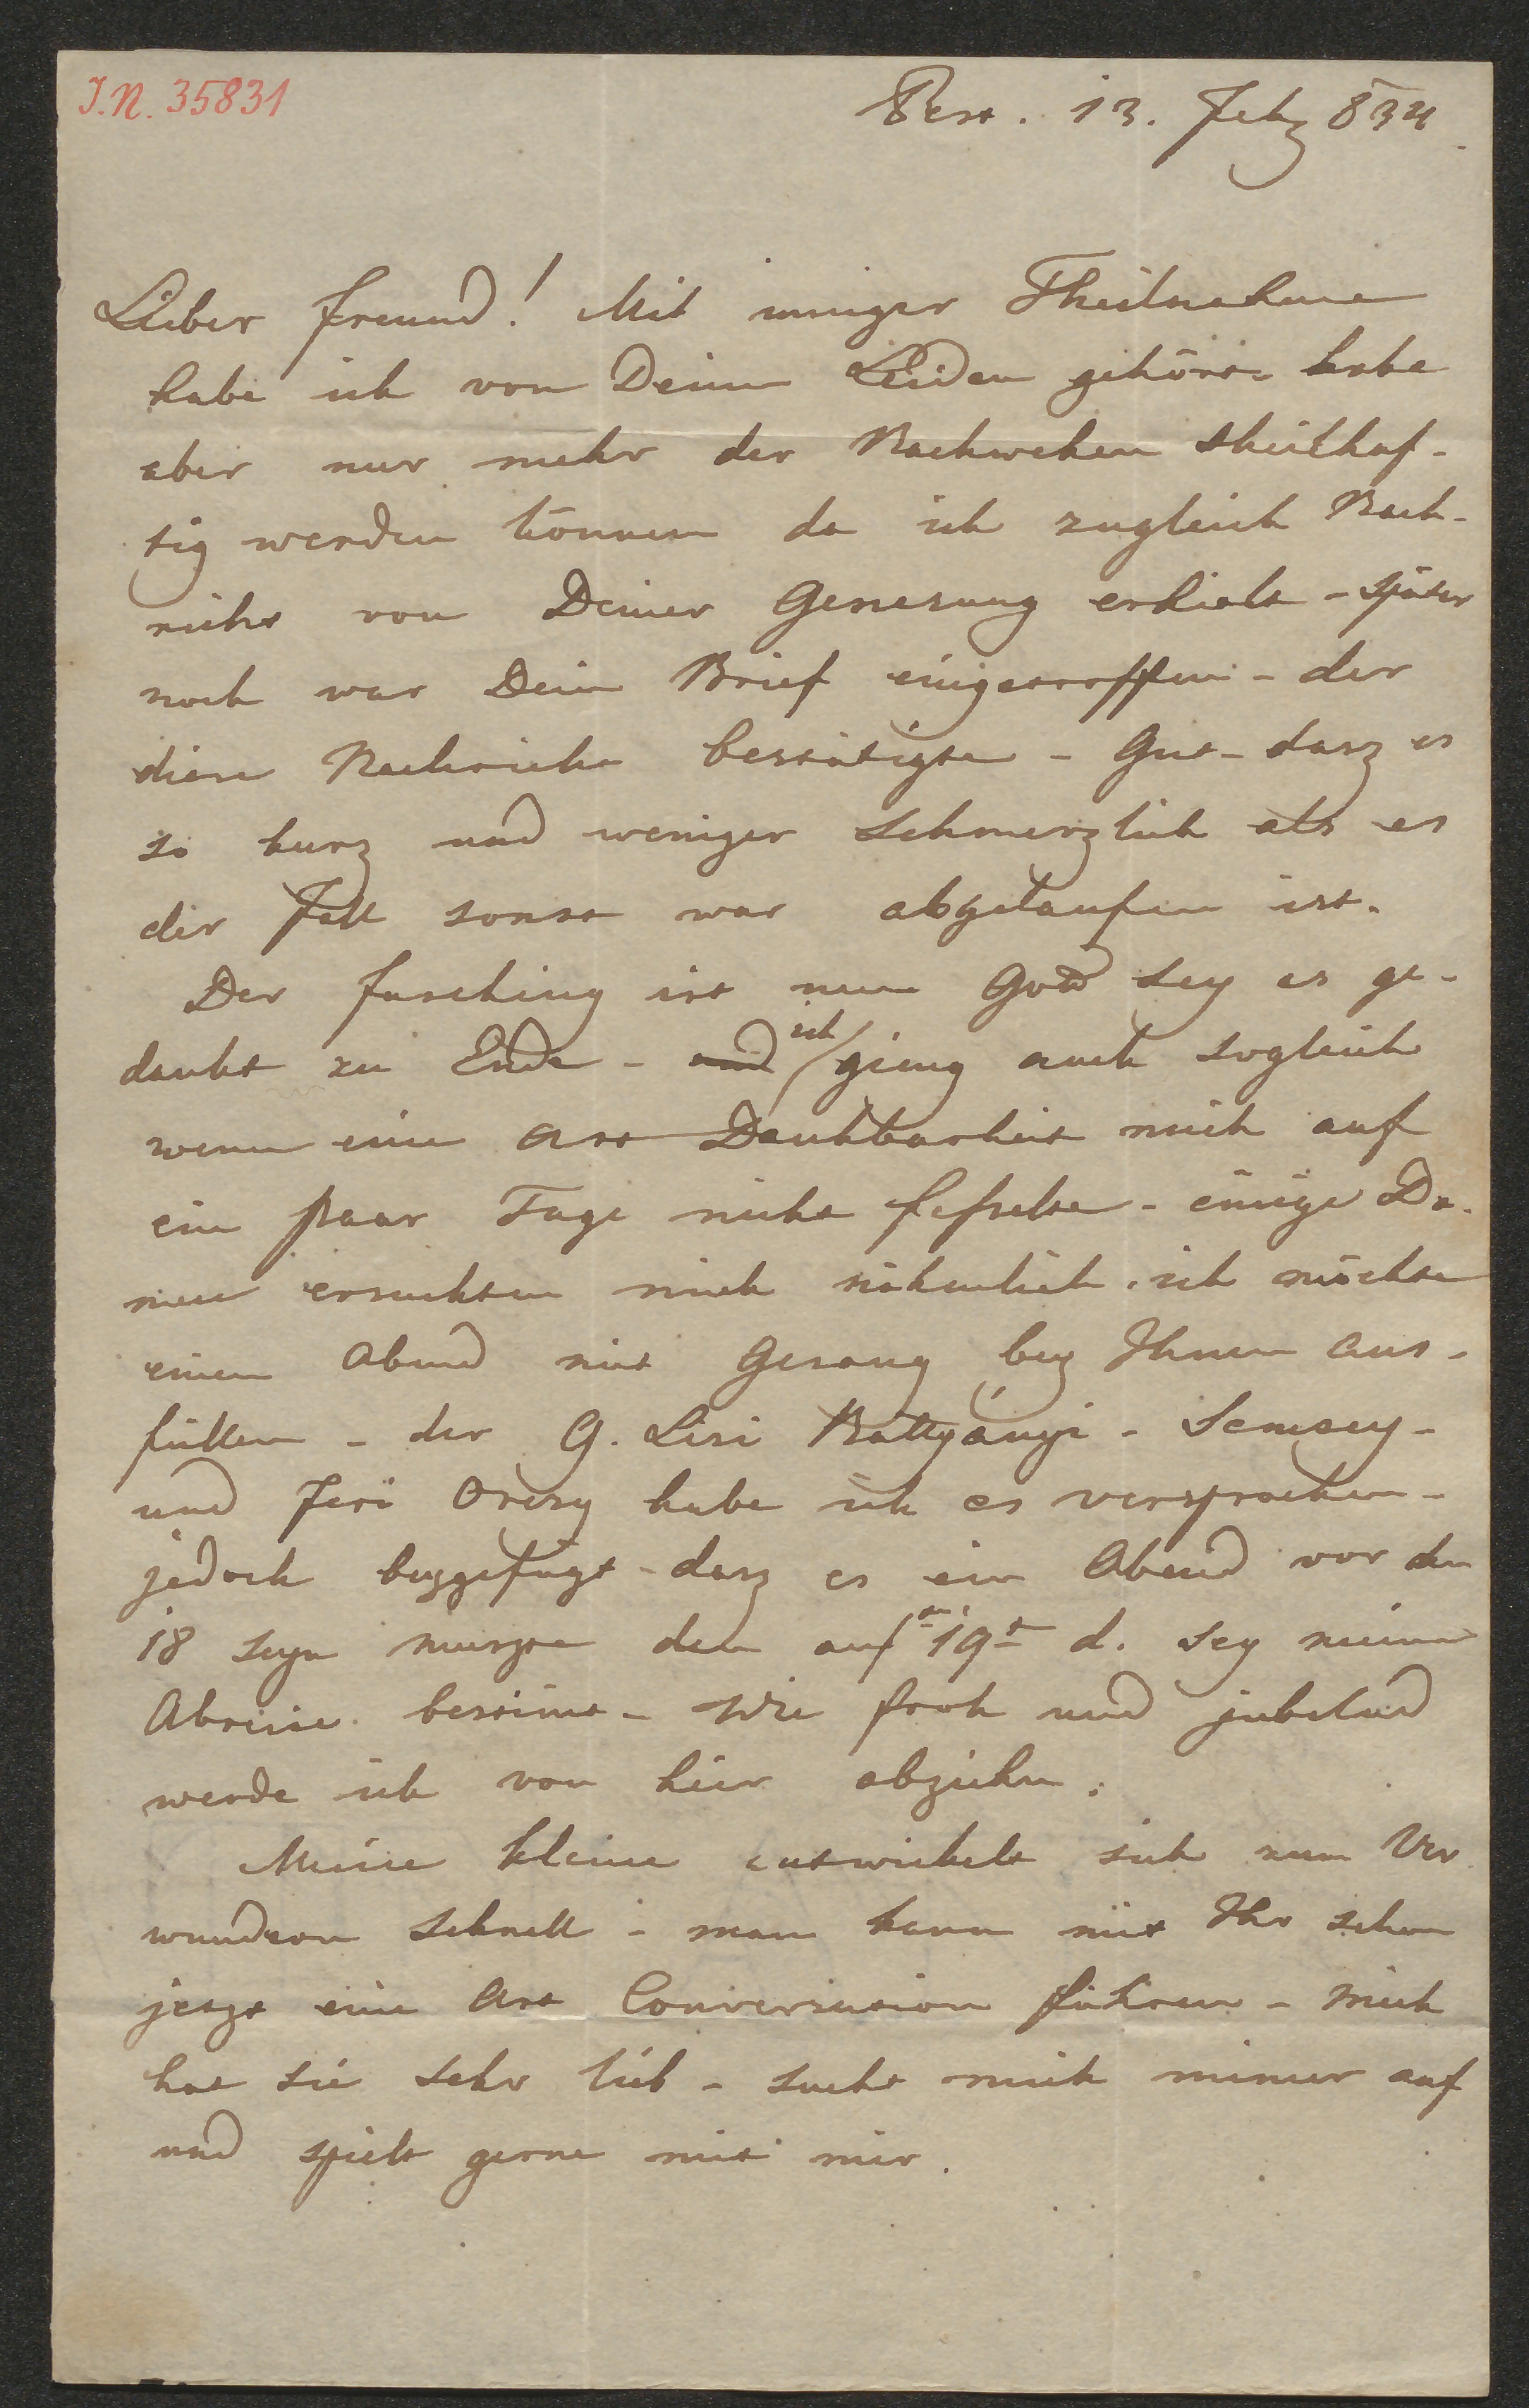 I.N. 35831
Pest. 13. Feb 834
Lieber Freund! Mit inniger Theilnahme
habe ich von Deinen Leiden gehört – habe
aber nur mehr der Nachwehen theilhaf-
tig werden können da ich zugleich Nach-
richt von Deiner Genesung erhielt – später
noch war Dein Brief eingetroffen – der
diese Nachricht bestätigte – Gut – dasz es
so kurz und weniger schmerzlich als es
der Fall sonst war abgelaufen ist.
Der Fasching ist nun Gott sey es ge-
dankt zu Ende – und ich gieng auch sogleich
wenn eine Art Dankbarkeit mich auf
ein paar Tage nicht fesselte – einige Da-
men ersuchten mich nähmlich ich möchte
einen Abend mit Gesang bey Ihnen aus-
füllen – der G. Lisi Battyányi – Semsey –
und Feri Orczy habe ich es versprochen –
jedoch beygefügt – dasz es ein Abend vor den
18 seyn muszte den auf den 19t d. sey meine
Abreise bestimt – Wie froh und jubelnd
werde ich von hier abziehn.
Meine Kleine entwickelt sich zum Ver
wundern schnell – man kann mit Ihr schon
jetzt eine Art Conversation führen – mich
hat sie sehr lieb – sucht mich immer auf
und spielt gerne mit mir.